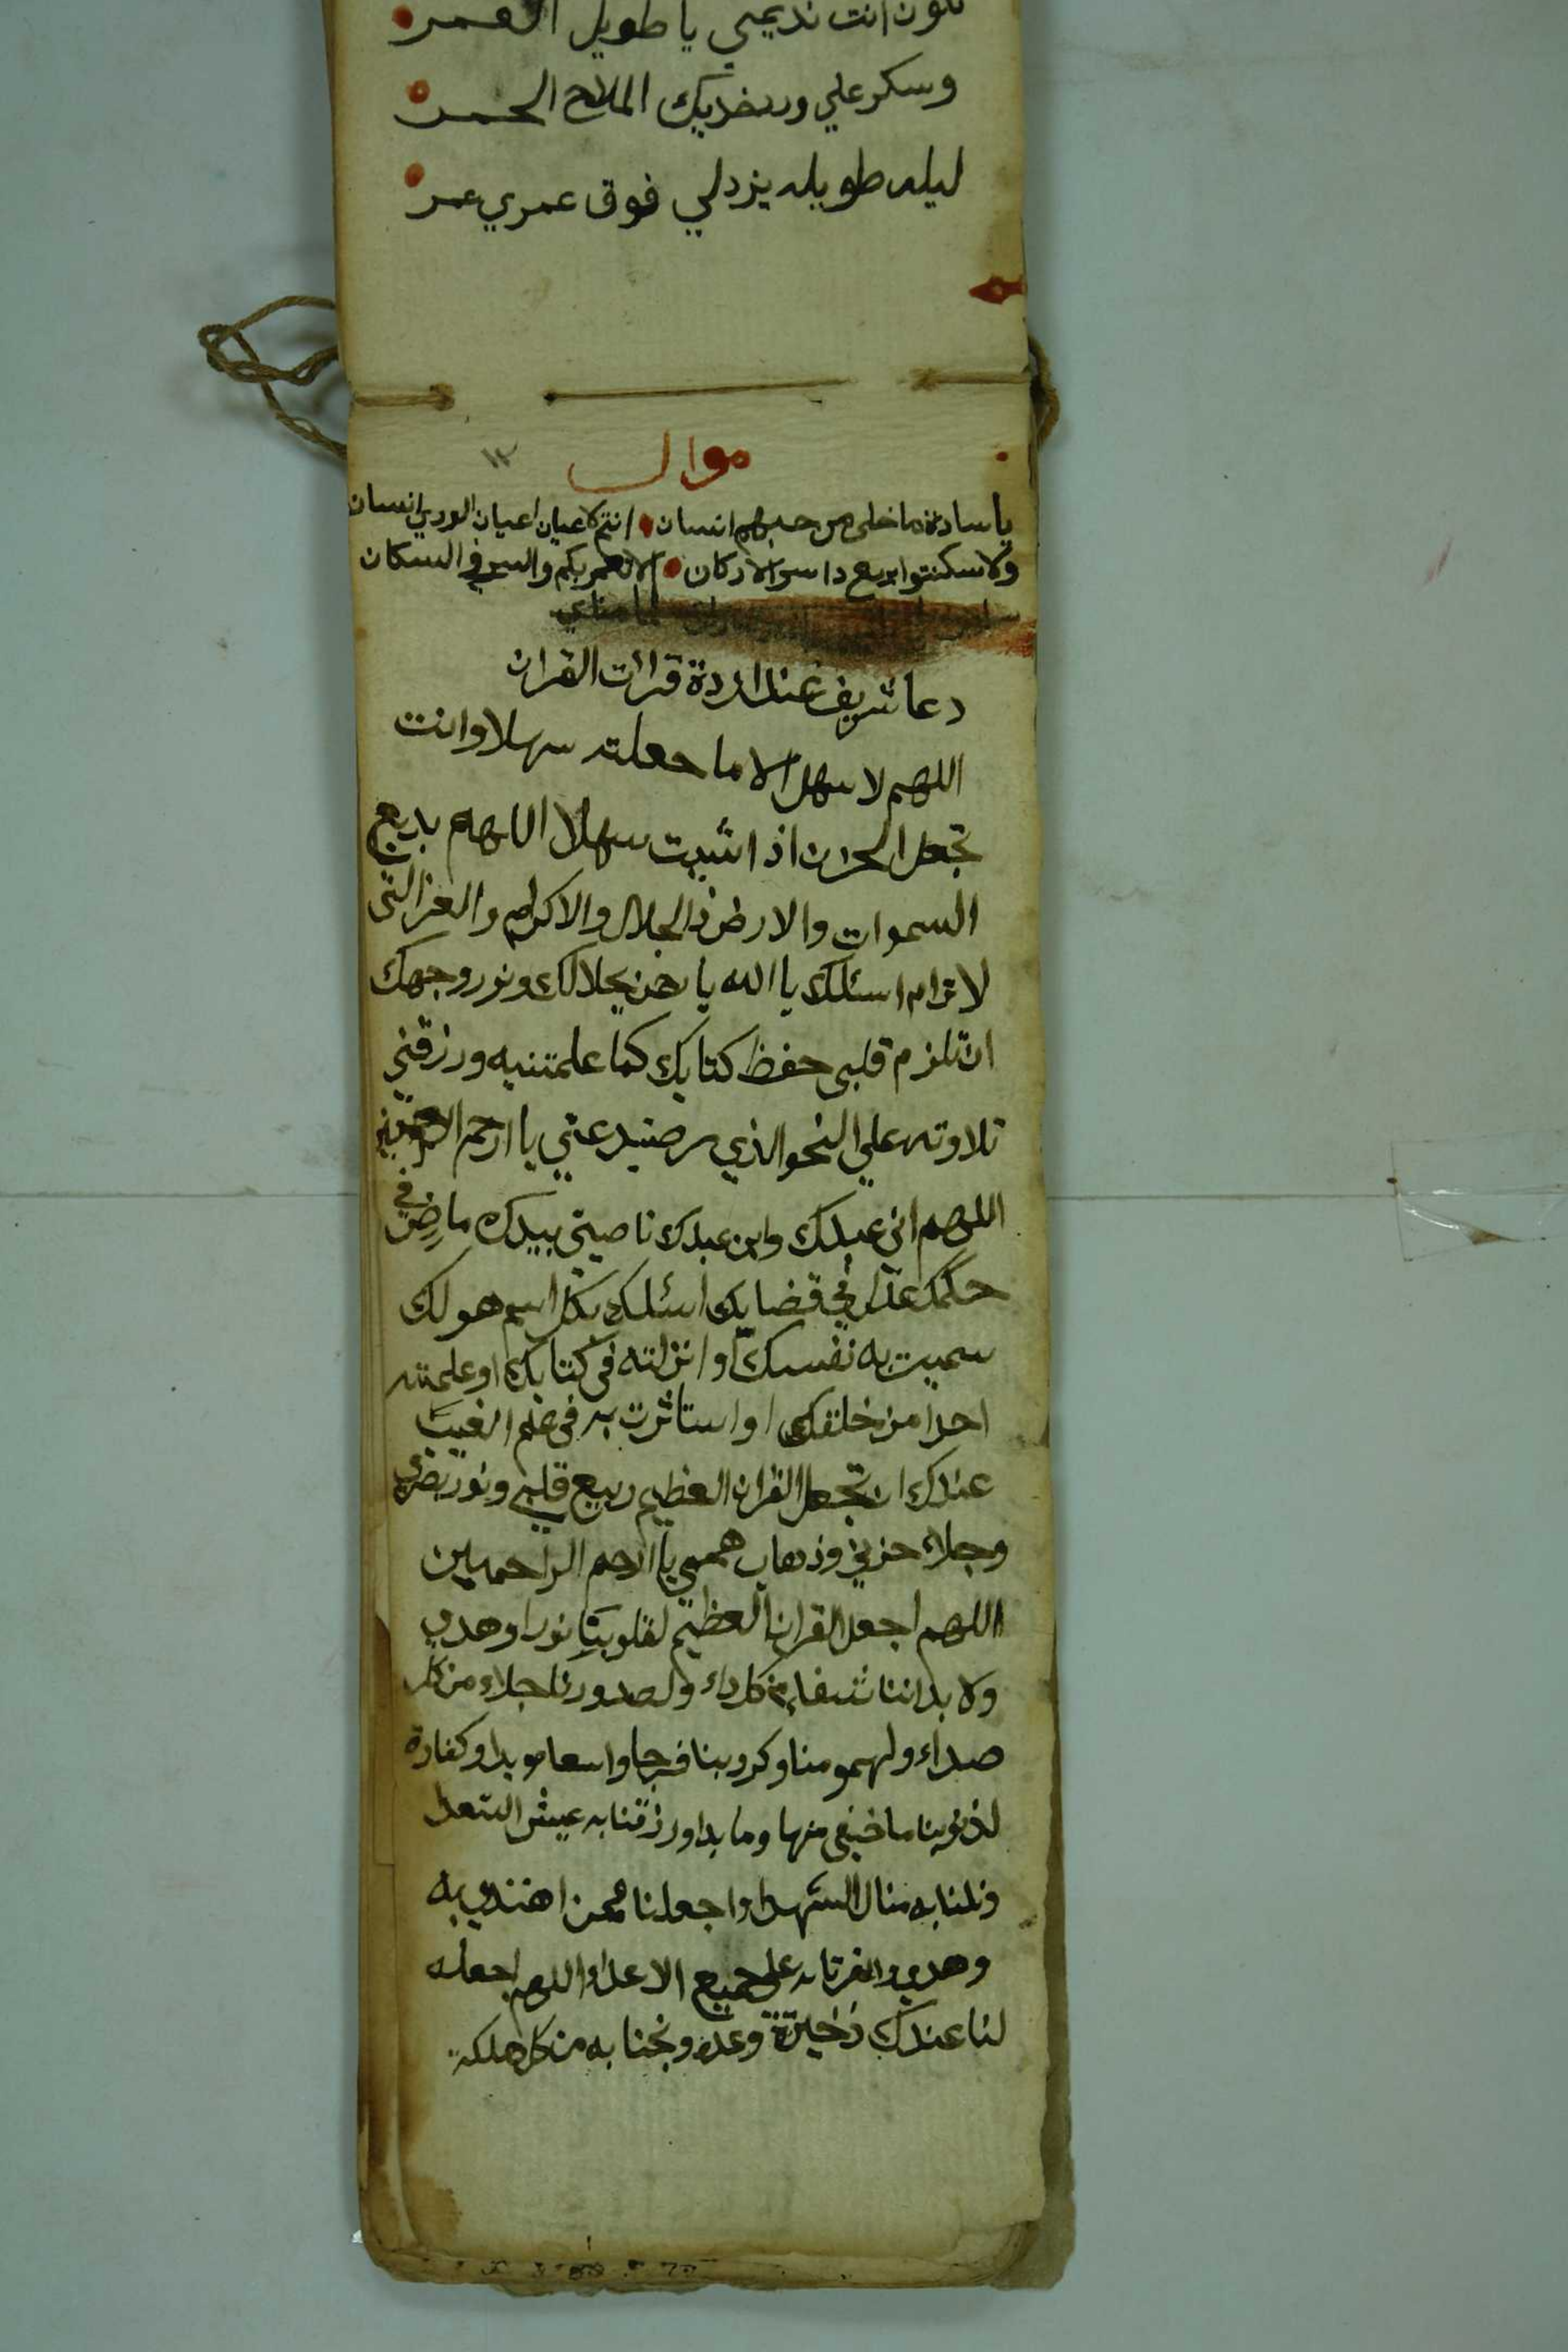 تكون انت نديمي يا طويل العمر
وسكر علي ورد خديك الملاح الحمر
ليله طويله يزدلي فوق عمري عمر
موال
١٢
يا سادة ما خلي من حبهم انسان انتم كاعيان اعيان الوري انسان
ولا سكنتوا بربع داسر الاركان الا نعمر بكم والسر في السكان
دعا شريف عند اردة قرائت القران
اللهم لا سهل الا ما جعلته سهلا وانت
تجعل الحزن اذا شيت سهلا اللهم بديع
السموات والارض ذا الجلال والاكرام والعز التي
لا ترام اسئلك يا الله يا رحمن بجلالك ونور وجهك
ان تلزم قلبي حفظ كتابك كما علمتنيه ورزقني
تلاوته علي النحو الذي يرضيك عني يا ارحم الراحمين
اللهم اني عبدك وابن عبدك ناصيتي بيدك ماض في
حكمك عدل في قضايك اسئلك بكل اسم هو لك
سميت به نفسك او انزلته في كتابك او علمته
احدا من خلقك او استاثرت به في علم الغيب
عندك ان تجعل القران العظيم ربيع قلبي ونور بصري
وجلاء حزني وذهاب همي يا ارحم الراحمين
اللهم اجعل القران العظيم لقلوبنا نورا وهدي
ولابداننا شفاء من كل داء ولصدورنا جلاء من كل
صداء ولهمومنا وكروبنا فرجا واسعا موبدا وكفارة
لذنوبنا ما خفي منها وما بدا ورزقنا به عيش السعدا
ونلنا به منال الشهدا واجعلنا ممن اهتدي به
وهدي وانصرنا به علي جميع الاعداء اللهم اجعله
لنا عندك ذخيرة وعده ونجنا به من كل هلكه